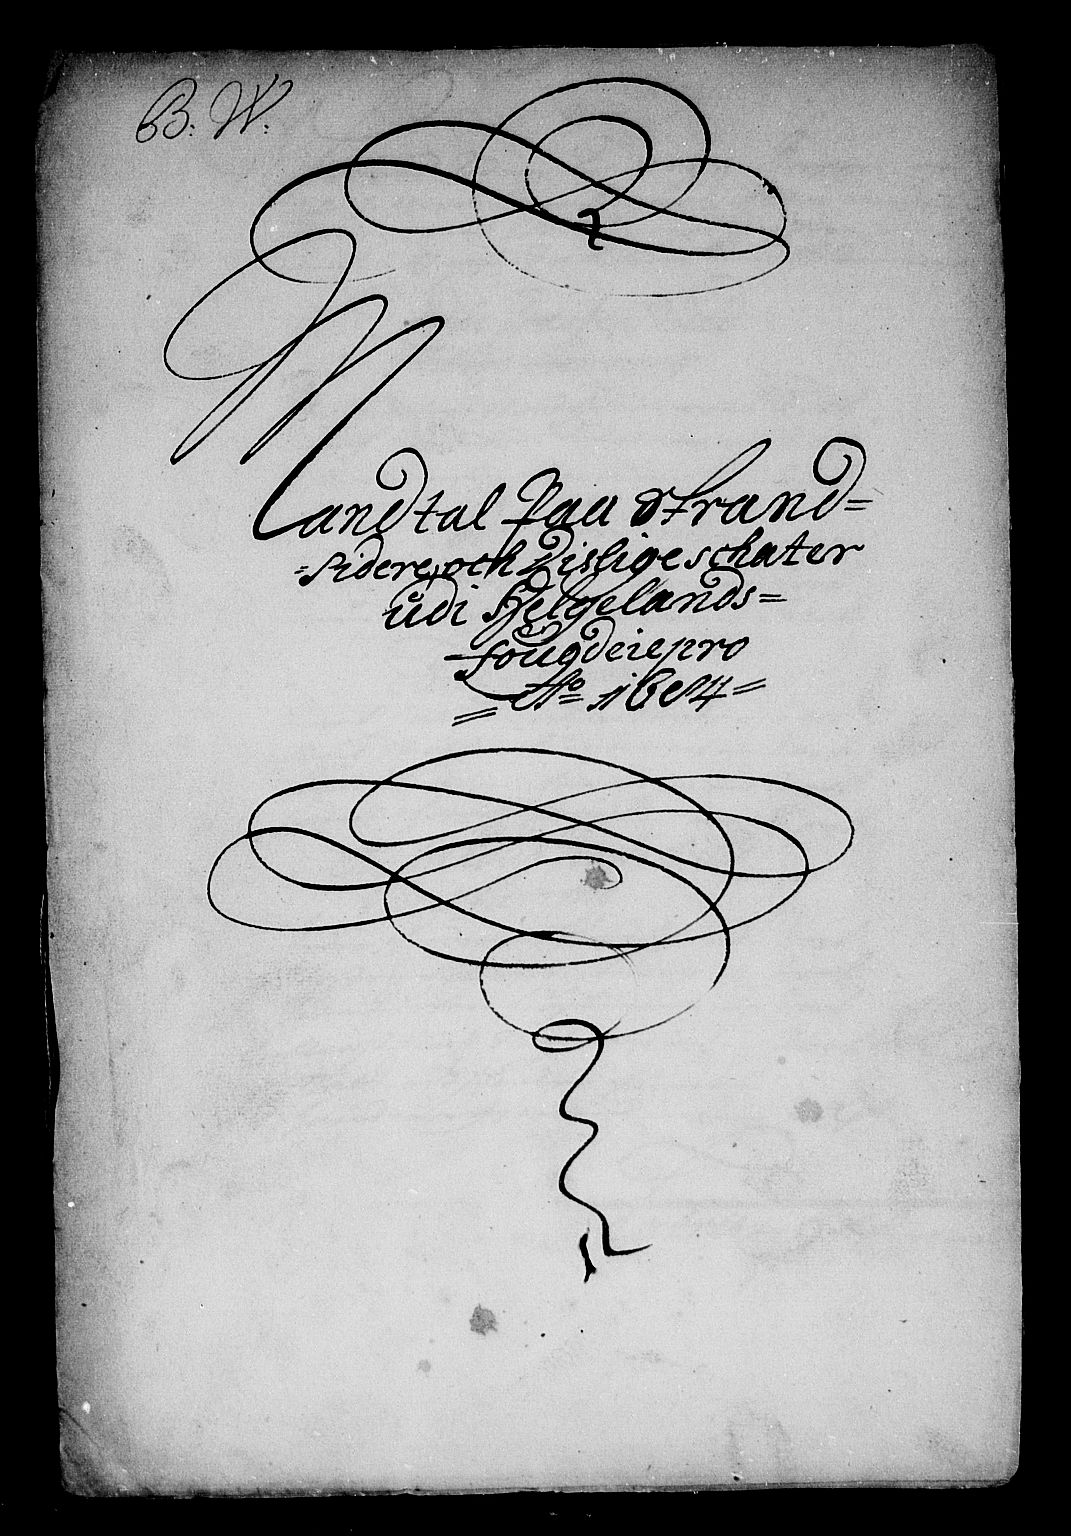 B: W:
Mandtal paa Strand=
=sidere, och disligeschater
udi Helgelands=
fougdeie pro
=Ao 16 4=